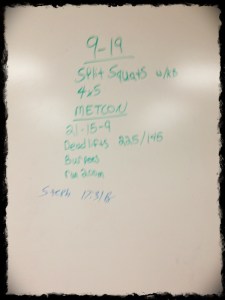 9-19
Split Squats
4x5
METCON
21-15-9
Deadlifts 225/145
Burpees
run 200m